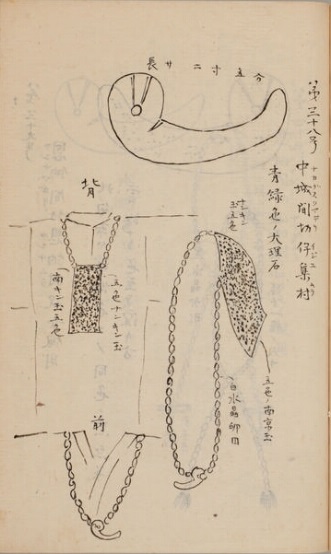 第二十八号
中城間切伊集村
青緑色ノ大理石
長サ 二寸五分
五色ノ南京玉
白水晶卵目
背
五色ナンキン玉
南キン玉五色
前